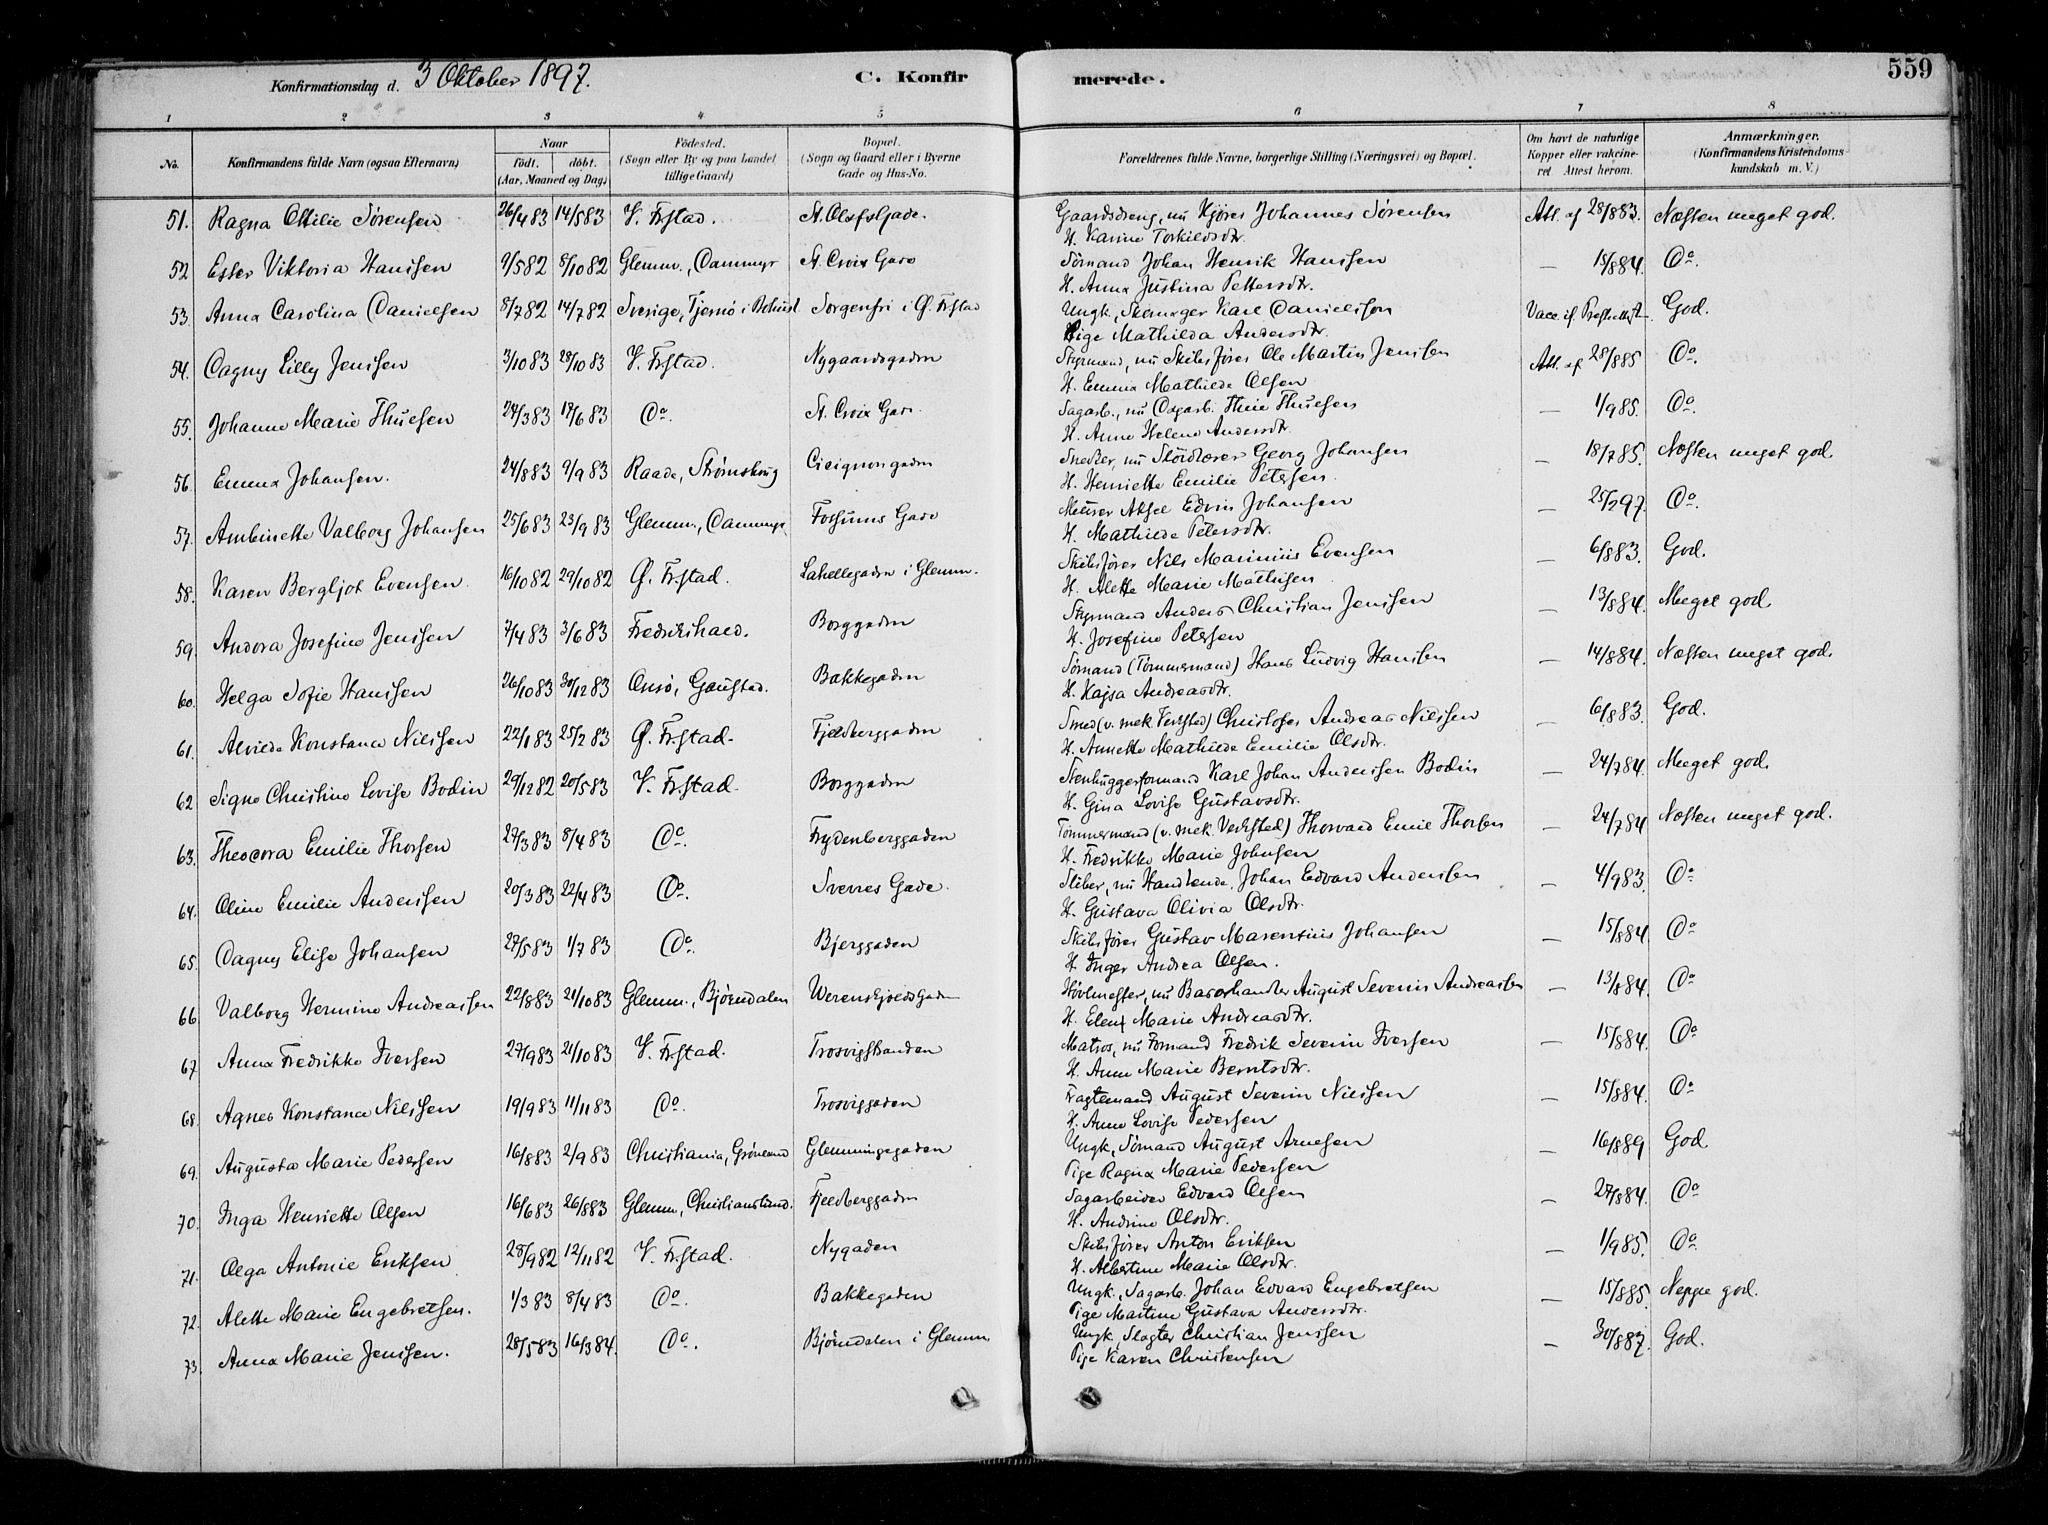 Konfirmationsdag d. 3 Oktober 1897.
C. Konfirmerede.
559
1 2 3 4 5 6 7 8
No.
Konfirmandens fulde Navn (ogsaa Efternavn)
Naar
født. døbt.
(Aar, Maaned og Dag)
Fødested.
(Sogn eller By og paa Landet
tillige Gaard)
Bopæl.
(Sogn og Gaard eller i Byerne
Gade og Hus-No.
Forældrenes fulde Navne, borgerlige Stilling (Næringsvei) og Bopæl.
Om havt de naturlige
Kopper eller vakcine-
ret Attest herom.
Anmærkninger.
(Konfirmandens Kristendoms-
kundskab m. V.)
51. Ragna Otilie Sørensen 26/4 83 14/5 83 V. Fr.stad. St. Olafs Gade. Gaardsdreng, nu Kjører Johannes Sørensen Att. af 28/8 83. Næsten meget god.
H. Karine Torkildsdtr.
52 Ester Viktoria Hanssen 9/5 82 8/10 82 Glemm., Dammyr St. Croix Gade Sømand Johan Henrik Hanssen — 15/8 84. Do.
H. Anna Justina Pettersdtr.
53. Anna Carolina Danielsen 8/7 82 14/7 82 Sverige, Tjernø i Bohusl. Sorgenfri i Ø. Fr.stad Ungk., Skomager Karl Danielsson Vacc. if. Præsteatt. God.
Pige Mathilda Andersdtr.
54. Dagny Lilly Jenssen 3/10 83 28/10 83 V. Fr.stad. Nygaardsgaden Styrmand, nu Skibsfører Ole Martin Jenssen Att. af 28/8 85 Do.
H. Emma Mathilde Olsen
55. Johanne Marie Thuesen 24/3 83 17/6 83 Do. St. Croix Gade Sagarb., nu Dagarb. Thue Thuesen — 1/9 85. Do.
H. Anne Helene Andersdtr.
56. Emma Johansen. 24/8 83 9/9 83 Raade, Strømshaug Cicignongaden Snedker, nu Georg Johansen — 18/7 85. Næsten meget god.
H. Henriette Emilie Petersen.
57. Ambinette Valborg Johansen 25/6 83 23/9 83 Glemm., Dammyr. Fossums Gade Murer Aksel Edvin Johansen — 25/2 97. Do.
H. Mathilde Petersdtr.
58. Karen Bergljot Evensen 16/10 82 29/10 82 Ø. Fr.stad. Lahellegaden i Glemm. Skibsfører Nils Marinius Evensen — 6/8 83. God.
H. Alette Marie Mathisen
59. Andora Josefine Jenssen 7/4 83 3/6 83 Fredrikshald. Borggaden Styrmand Anders Christian Jenssen — 13/8 84. Meget god.
H. Josefine Petersen
60. Helga Sofie Hanssen 26/10 83 30/12 83 Onsø, Gaustad. Bakkegaden Sømand (Tømmermand) Hans Ludvig Hanssen — 14/8 84. Næsten meget god.
H. Kajsa Andreasdtr.
61. Alvilde Konstance Nilssen 22/1 83 25/2 83 Ø. Fr.stad. Fjeldberggaden Smed (v. mek Verksted) Christofer Andreas Nilssen — 6/8 83. God.
H. Annette Mathilde Emilie Olsdtr.
62. Signe Christine Lovise Bodin 29/12 82 20/5 83 V. Fr.stad. Borggaden Stenhuggerformand Karl Johan Anderssen Bodin — 24/7 84. Meget god.
H. Gina Lovise Gustavsdtr.
63. Theodora Emilie Thorsen 27/3 83 8/4 83 Do. Frydenberggaden Tømmermand (v. mek. Verksted) Thorvald Emil Thorsen — 24/7 84 Næsten meget god.
H. Fredrikke Marie Johnsen
64. Oline Emilie Anderssen 20/3 83 22/4 83 Do. Sverres Gade. Sliber, nu Handlende, Johan Edvard Anderssen — 4/9 83. Do.
H. Gustava Olivia Olsdtr.
65. Dagny Elise Johansen 27/5 83 1/7 83 Do. Bjerggaden Skibsfører Gustav Marentius Johansen — 15/8 84. Do.
H. Inger Andrea Olsen.
66 Valborg Hermine Andreassen 22/8 83 21/10 83 Glemm., Bjørndalen Werenskjolds Gaden Høvlmester, nu Baserhandler August Severin Andreassen — 13/8 84. Do.
H. Elen Marie Andreasdtr.
67 Anna Fredrikke Iversen 27/9 83 21/10 83 V. Fr.stad. Trosvigstranden Matros, nu Formand Fredrik Severin Iversen — 15/8 84. Do.
H. Anne Marie Berntsdtr.
68. Agnes Konstance Nilssen 19/9 83 11/11 83 Do. Trosviggaden Fragtemand August Severin Nilssen — 15/8 84. Do.
H. Anne Lovise Pedersen
69. Augusta Marie Pedersen 16/8 83 2/9 83 Christiania, Grønland Glemmingegaden Ungk., Sømand August Arnesen — 16/8 89 God.
Pige Ragna Marie Pedersen
70. Inga Henriette Olsen 16/6 83 26/8 83 Glemm., Christianslund. Fjeldberggaden Sagarbeider Edvard Olsen — 27/8 84. Do.
H. Andrine Olsdtr.
71. Olga Antonie Eriksen 28/9 82 12/11 82 V. Fr.stad. Nygaden Skibsfører Anton Eriksen — 1/9 85. Do.
H. Albertine Marie Olsdtr.
72. Alette Marie Engebretsen. 1/3 83 8/4 83 Do. Bakkegaden Ungk., Sagarb. Johan Edvard Engebretsen — 15/8 85. Neppe god.
Pige Martine Gustava Andersdtr.
73. Anna Marie Jenssen. 28/5 83 16/3 84. Do. Bjørndalen i Glemm. Ungk. Slagter Christian Jenssen — 30/8 87. God.
Pige Karen Christensen